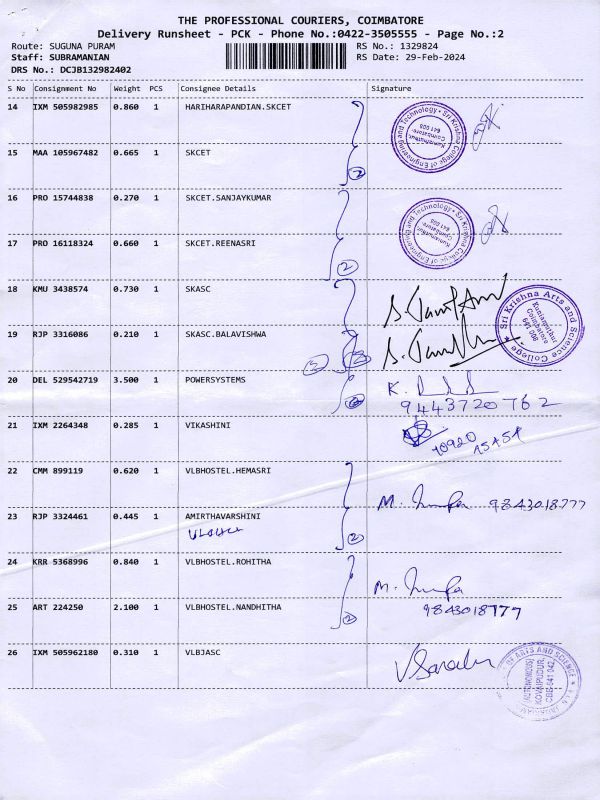 THE PROFESSIONAL COURIERS, COIMBATORE
Delivery Runsheet - PCK - Phone No.:0422-3505555 - Page No.:2
Route: SUGUNA PURAM RS No.: 1329824
Staff: SUBRAMANIAN RS Date: 29-Feb-2024
DRS No.: DCJB132982402
S No Consignment No Weight PCS Consignee Details Signature
14 IXM 505982985 0.860 1 HARIHARAPANDIAN.SKCET
Sri Krishna College of Engineering and Technology
Kuniamuthur, Coimbatore 641 008
15 MAA 105967482 0.665 1 SKCET
2
16 PRO 15744838 0.270 1 SKCET.SANJAYKUMAR
Sri Krishna College of Engineering and Technology
Kuniamuthur, Coimbatore 641 008
17 PRO 16118324 0.660 1 SKCET.REENASRI
2
18 KMU 3438574 0.730 1 SKASC
Sri Krishna Arts and Science College
Kuniamuthur Coimbatore 641 008
19 RJP 3316086 0.210 1 SKASC.BALAVISHWA
2
20 DEL 529542719 3.500 1 POWERSYSTEMS
K.
9443720762
21 IXM 2264348 0.285 1 VIKASHINI
22 CMM 899119 0.620 1 VLBHOSTEL.HEMASRI
M. 9843018777
23 RJP 3324461 0.445 1 AMIRTHAVARSHINI
2
24 KRR 5368996 0.840 1 VLBHOSTEL.ROHITHA
M.
25 ART 224250 2.100 1 VLBHOSTEL.NANDHITHA
9843018777
2
26 IXM 505962180 0.310 1 VLBJASC
OF ARTS AND SCIENCE
(AUTONOMOUS)
KOVAIPUDUR,
CBE-641 042.